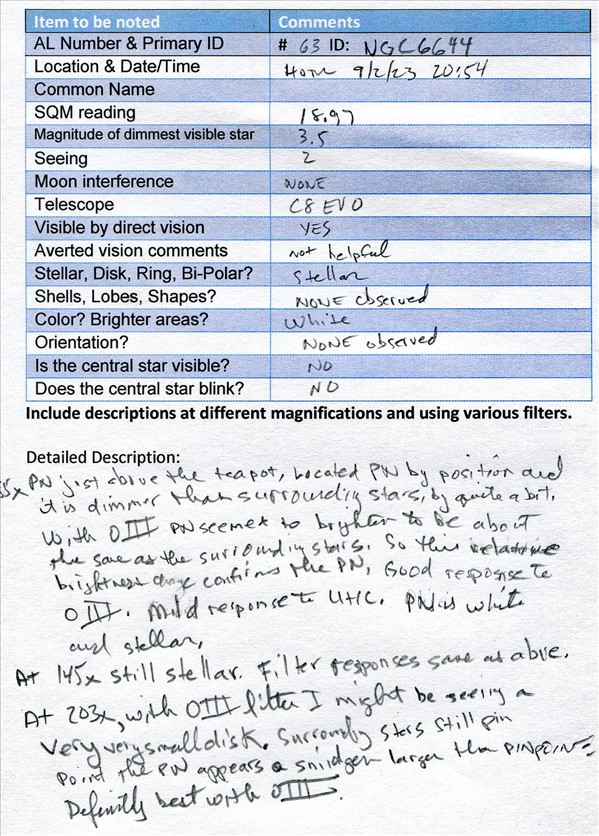 Item to be noted Comments
AL Number & Primary ID # 63 ID: NGC6644
Location & Date/Time Home 9/2/23 20:54
Common Name
SQM reading 18.97
Magnitude of dimmest visible star 3.5
Seeing 2
Moon interference NONE
Telescope C8 EVO
Visible by direct vision YES
Averted vision comments Not helpful
Stellar, Disk, Ring, Bi-Polar? Stellar
Shells, Lobes, Shapes? NONE observed
Color? Brighter areas? White
Orientation? NONE observed
Is the central star visible? NO
Does the central star blink? NO
Include descriptions at different magnifications and using various filters.
Detailed Description:
PN just above the teapot, Located PN by position and
it is dimmer than surrounding stars, by quite a bit.
With OIII PN seemed to brighten to be about
the same as the surrounding stars. So this relative
brightness change confirms the PN, Good response to
OIII. Mild response to UHC. PN is white
and stellar,
At 145x still stellar. Filter responses same as above.
At 203x, with OIII filter I might be seeing a
very very small disk. Surrounding stars still pin
point the PN appears a smidgen larger than PINPOINT
Definitly best with OIII.